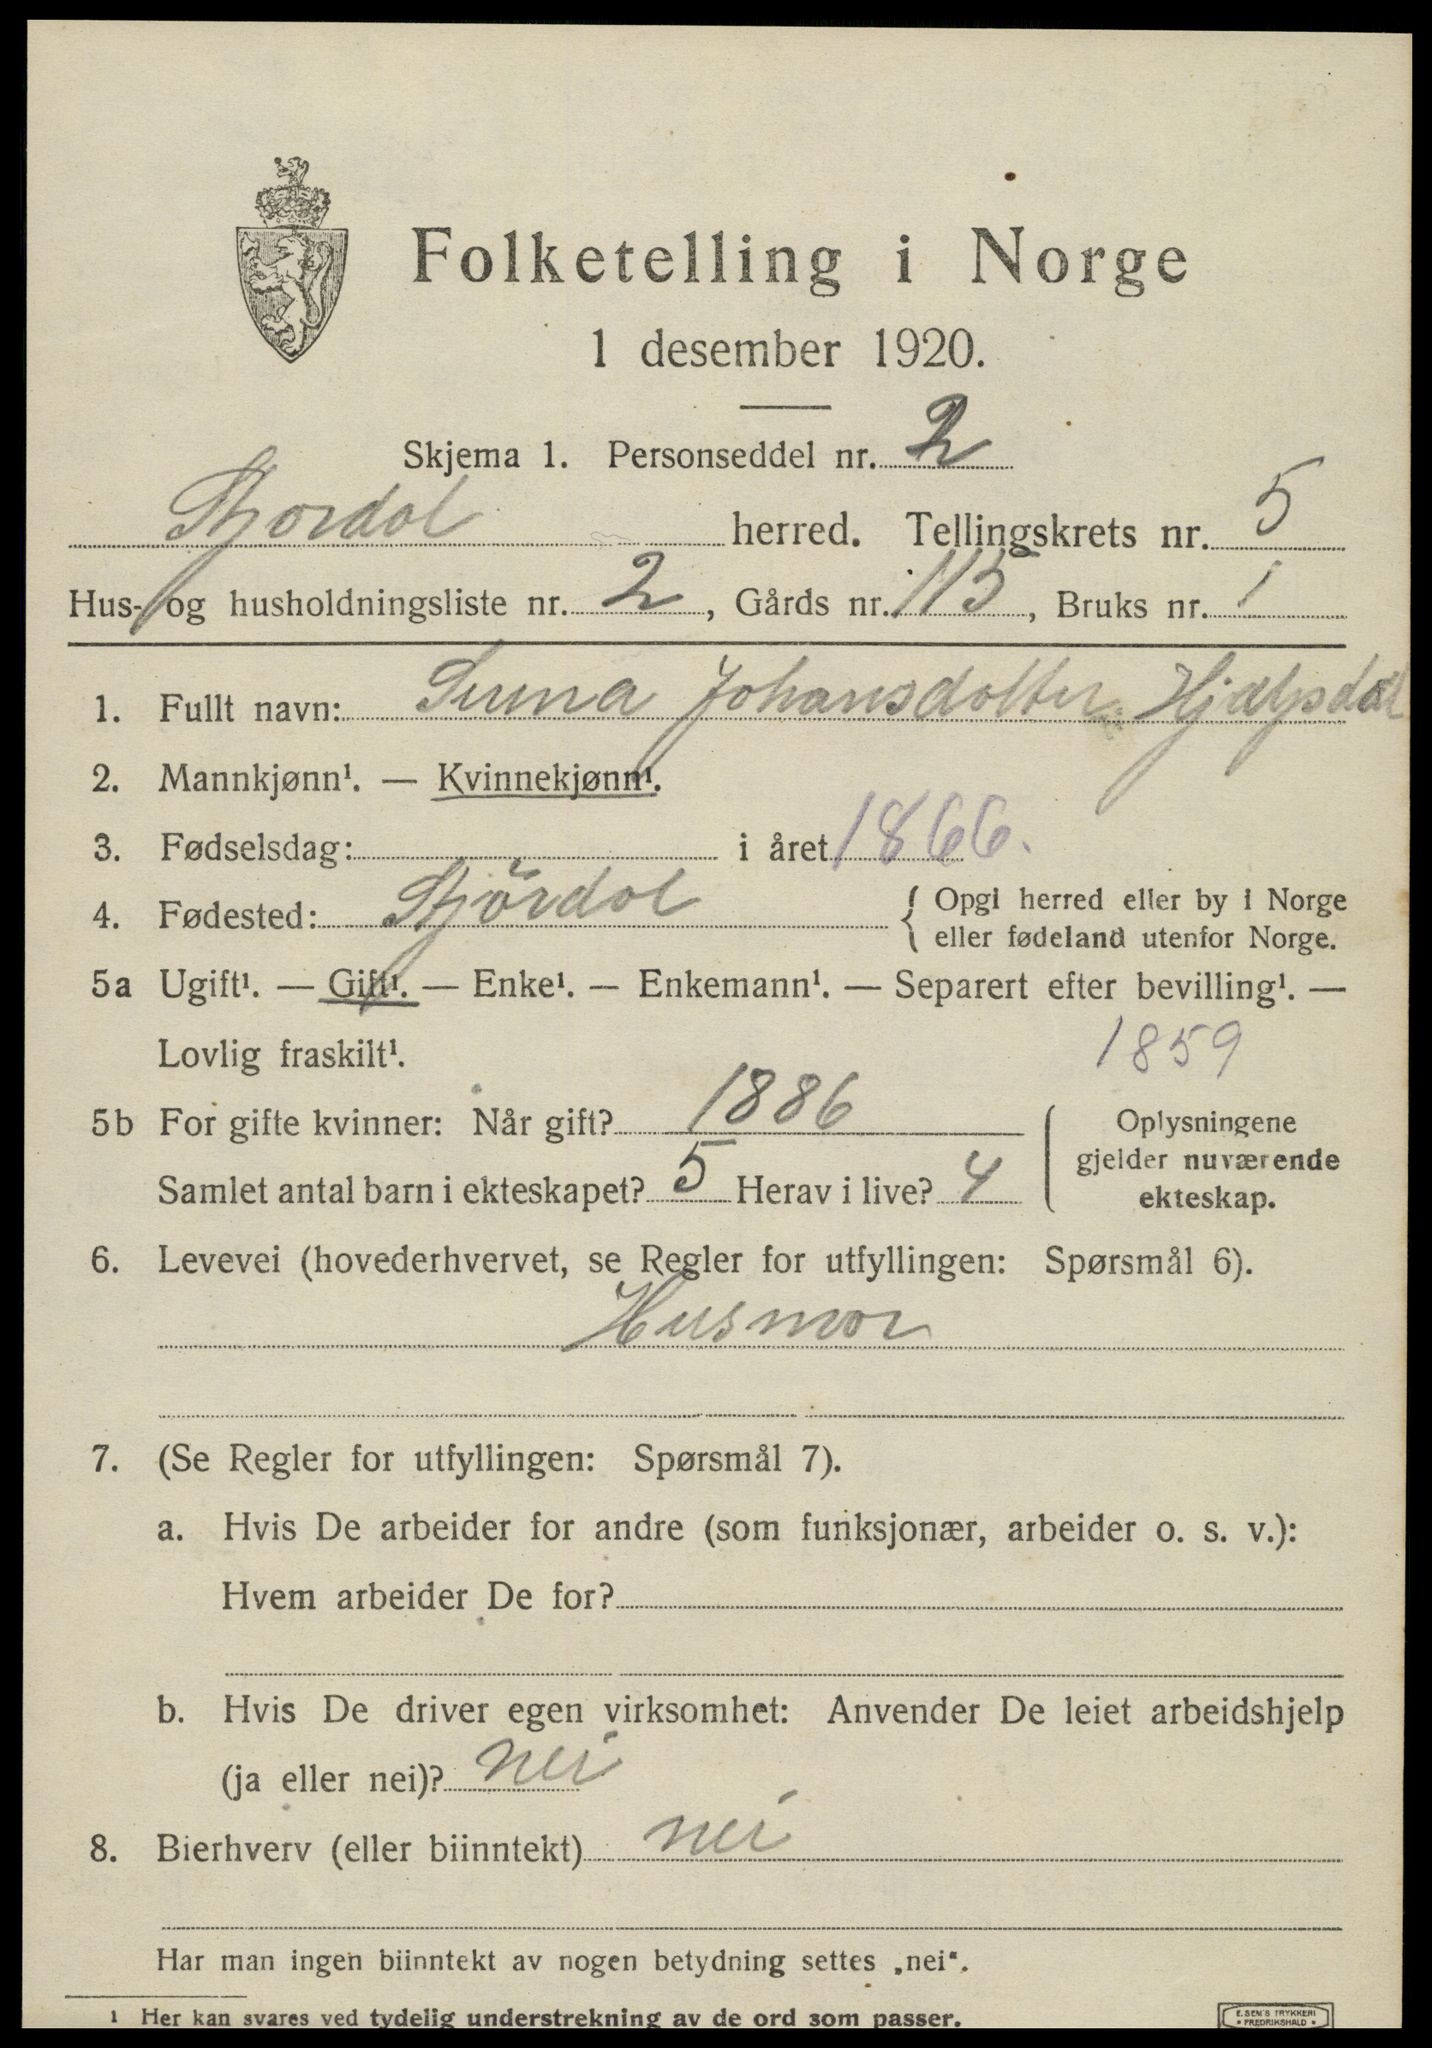 Folketelling i Norge
1 desember 1920.
Skjema 1. Personseddel nr. 2
herred. Tellingskrets nr. 5
Hus- og husholdningsliste nr. 2, Gårds nr. 115, Bruks nr. 1
1. Fullt navn: Johansdotter
2. Mannkjønn¹. — Kvinnekjønn¹.
3. Fødselsdag: i året 1866.
4. Fødested: Stjördal { Opgi herred eller by i Norge
eller fødeland utenfor Norge.
5a Ugift¹. — Gift¹. — Enke¹. — Enkemann¹. — Separert efter bevilling¹. —
Lovlig fraskilt¹. 1859
5b For gifte kvinner: Når gift? 1886
Samlet antal barn i ekteskapet? 5 Herav i live? 4
Oplysningene
gjelder nuværende
ekteskap.
6. Levevei (hovederhvervet, se Regler for utfyllingen: Spørsmål 6).
Husmor
7. (Se Regler for utfyllingen: Spørsmål 7).
a. Hvis De arbeider for andre (som funksjonær, arbeider o. s. v.):
Hvem arbeider De for?
b. Hvis De driver egen virksomhet: Anvender De leiet arbeidshjelp
(ja eller nei)? nei
8. Bierhverv (eller biinntekt) nei
Har man ingen biinntekt av nogen betydning settes „nei“.
1 Her kan svares ved tydelig understrekning av de ord som passer.
E. SEM'S TRYKKERI
• FREDRIKSHALD •